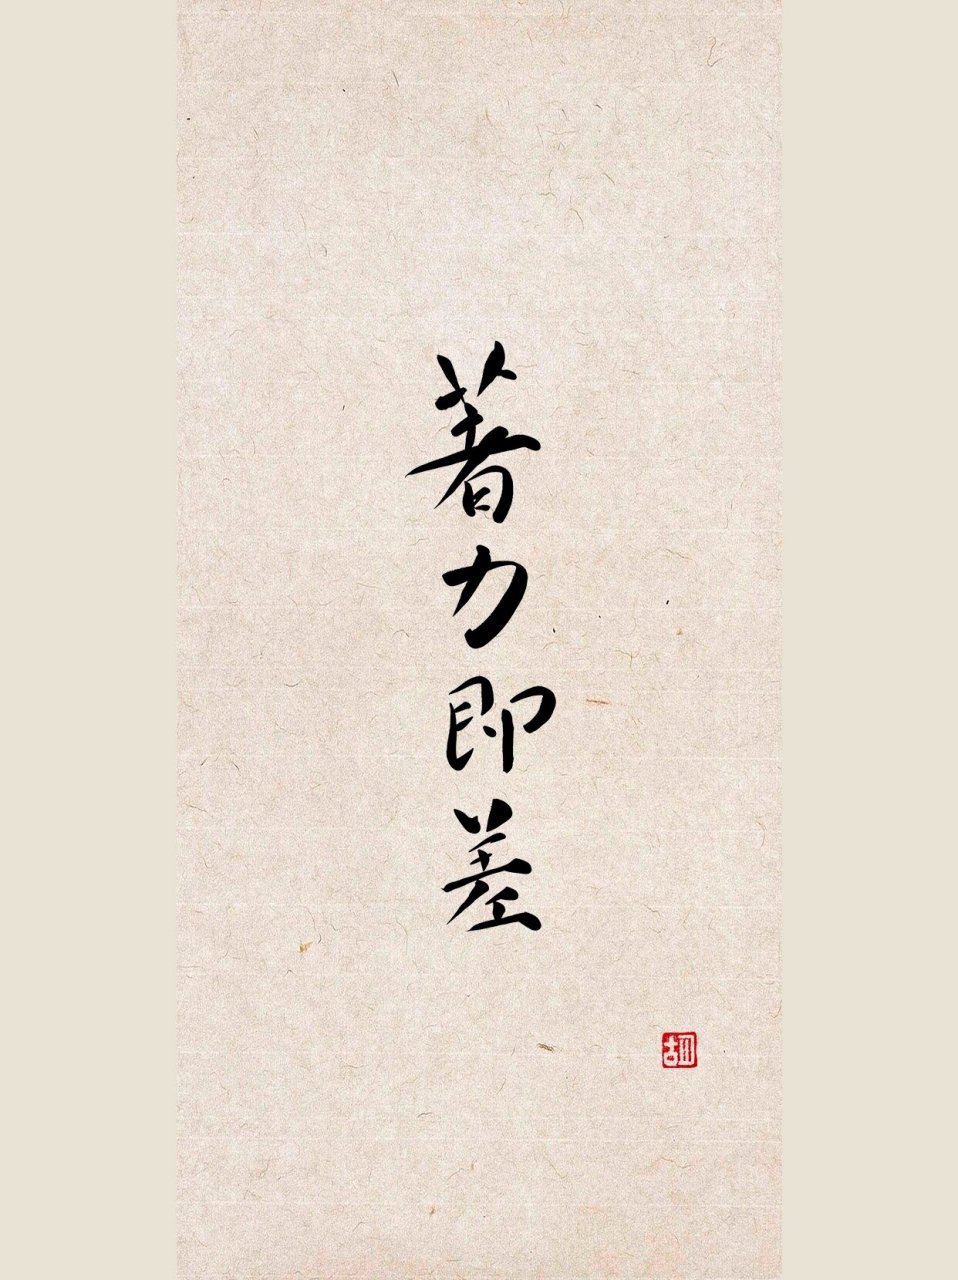 著力即差
胡